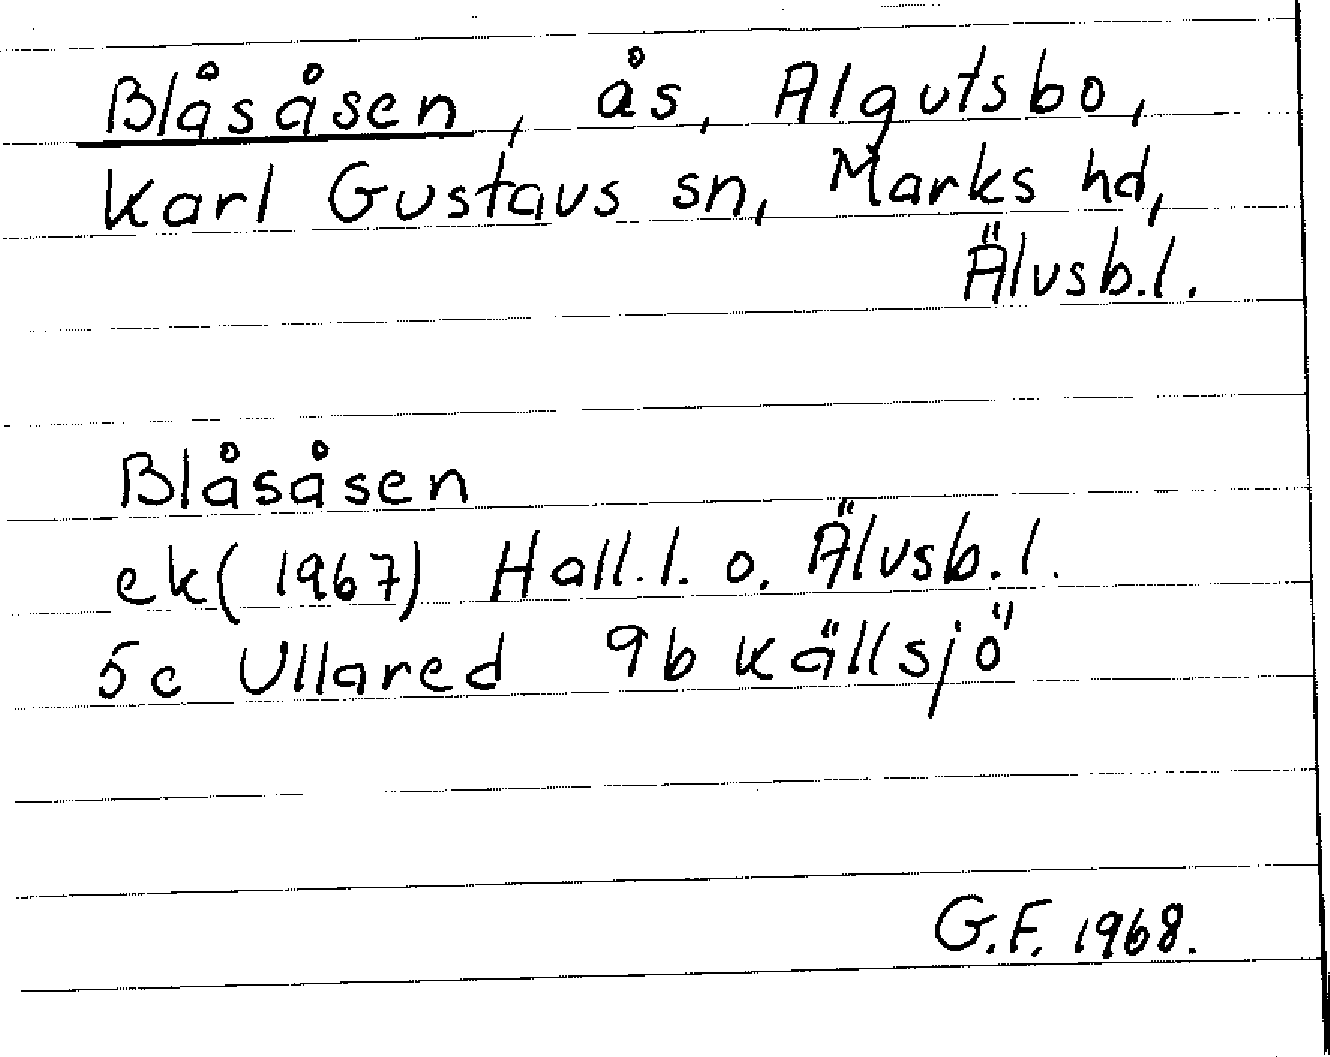 Blåsåsen, ås, Algutsbo,
Karl Gustavs sn, Marks hd,
Älvsb.l.
Blåsåsen
ek(1967) Hall.l. o. Älvsb.l.
5c Ullared 9b Källsjö
G.F. 1968.